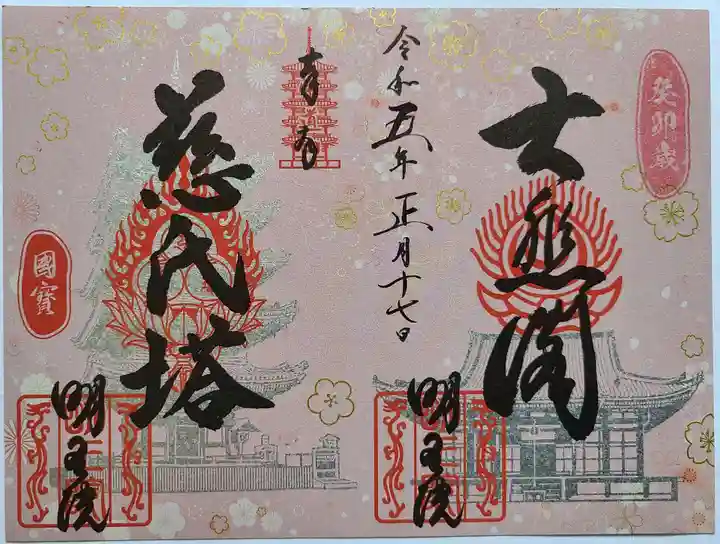 癸卯歳
大悲閣
明王院
令和五年正月十七日
奉拝
慈氏塔
國寶
明王院